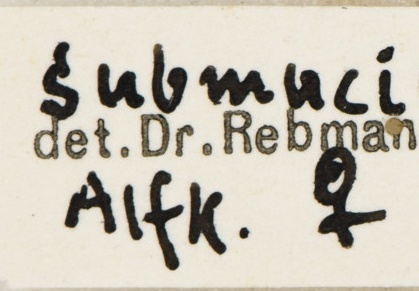 submuci
det. Dr. Rebman
Alfk. ♀